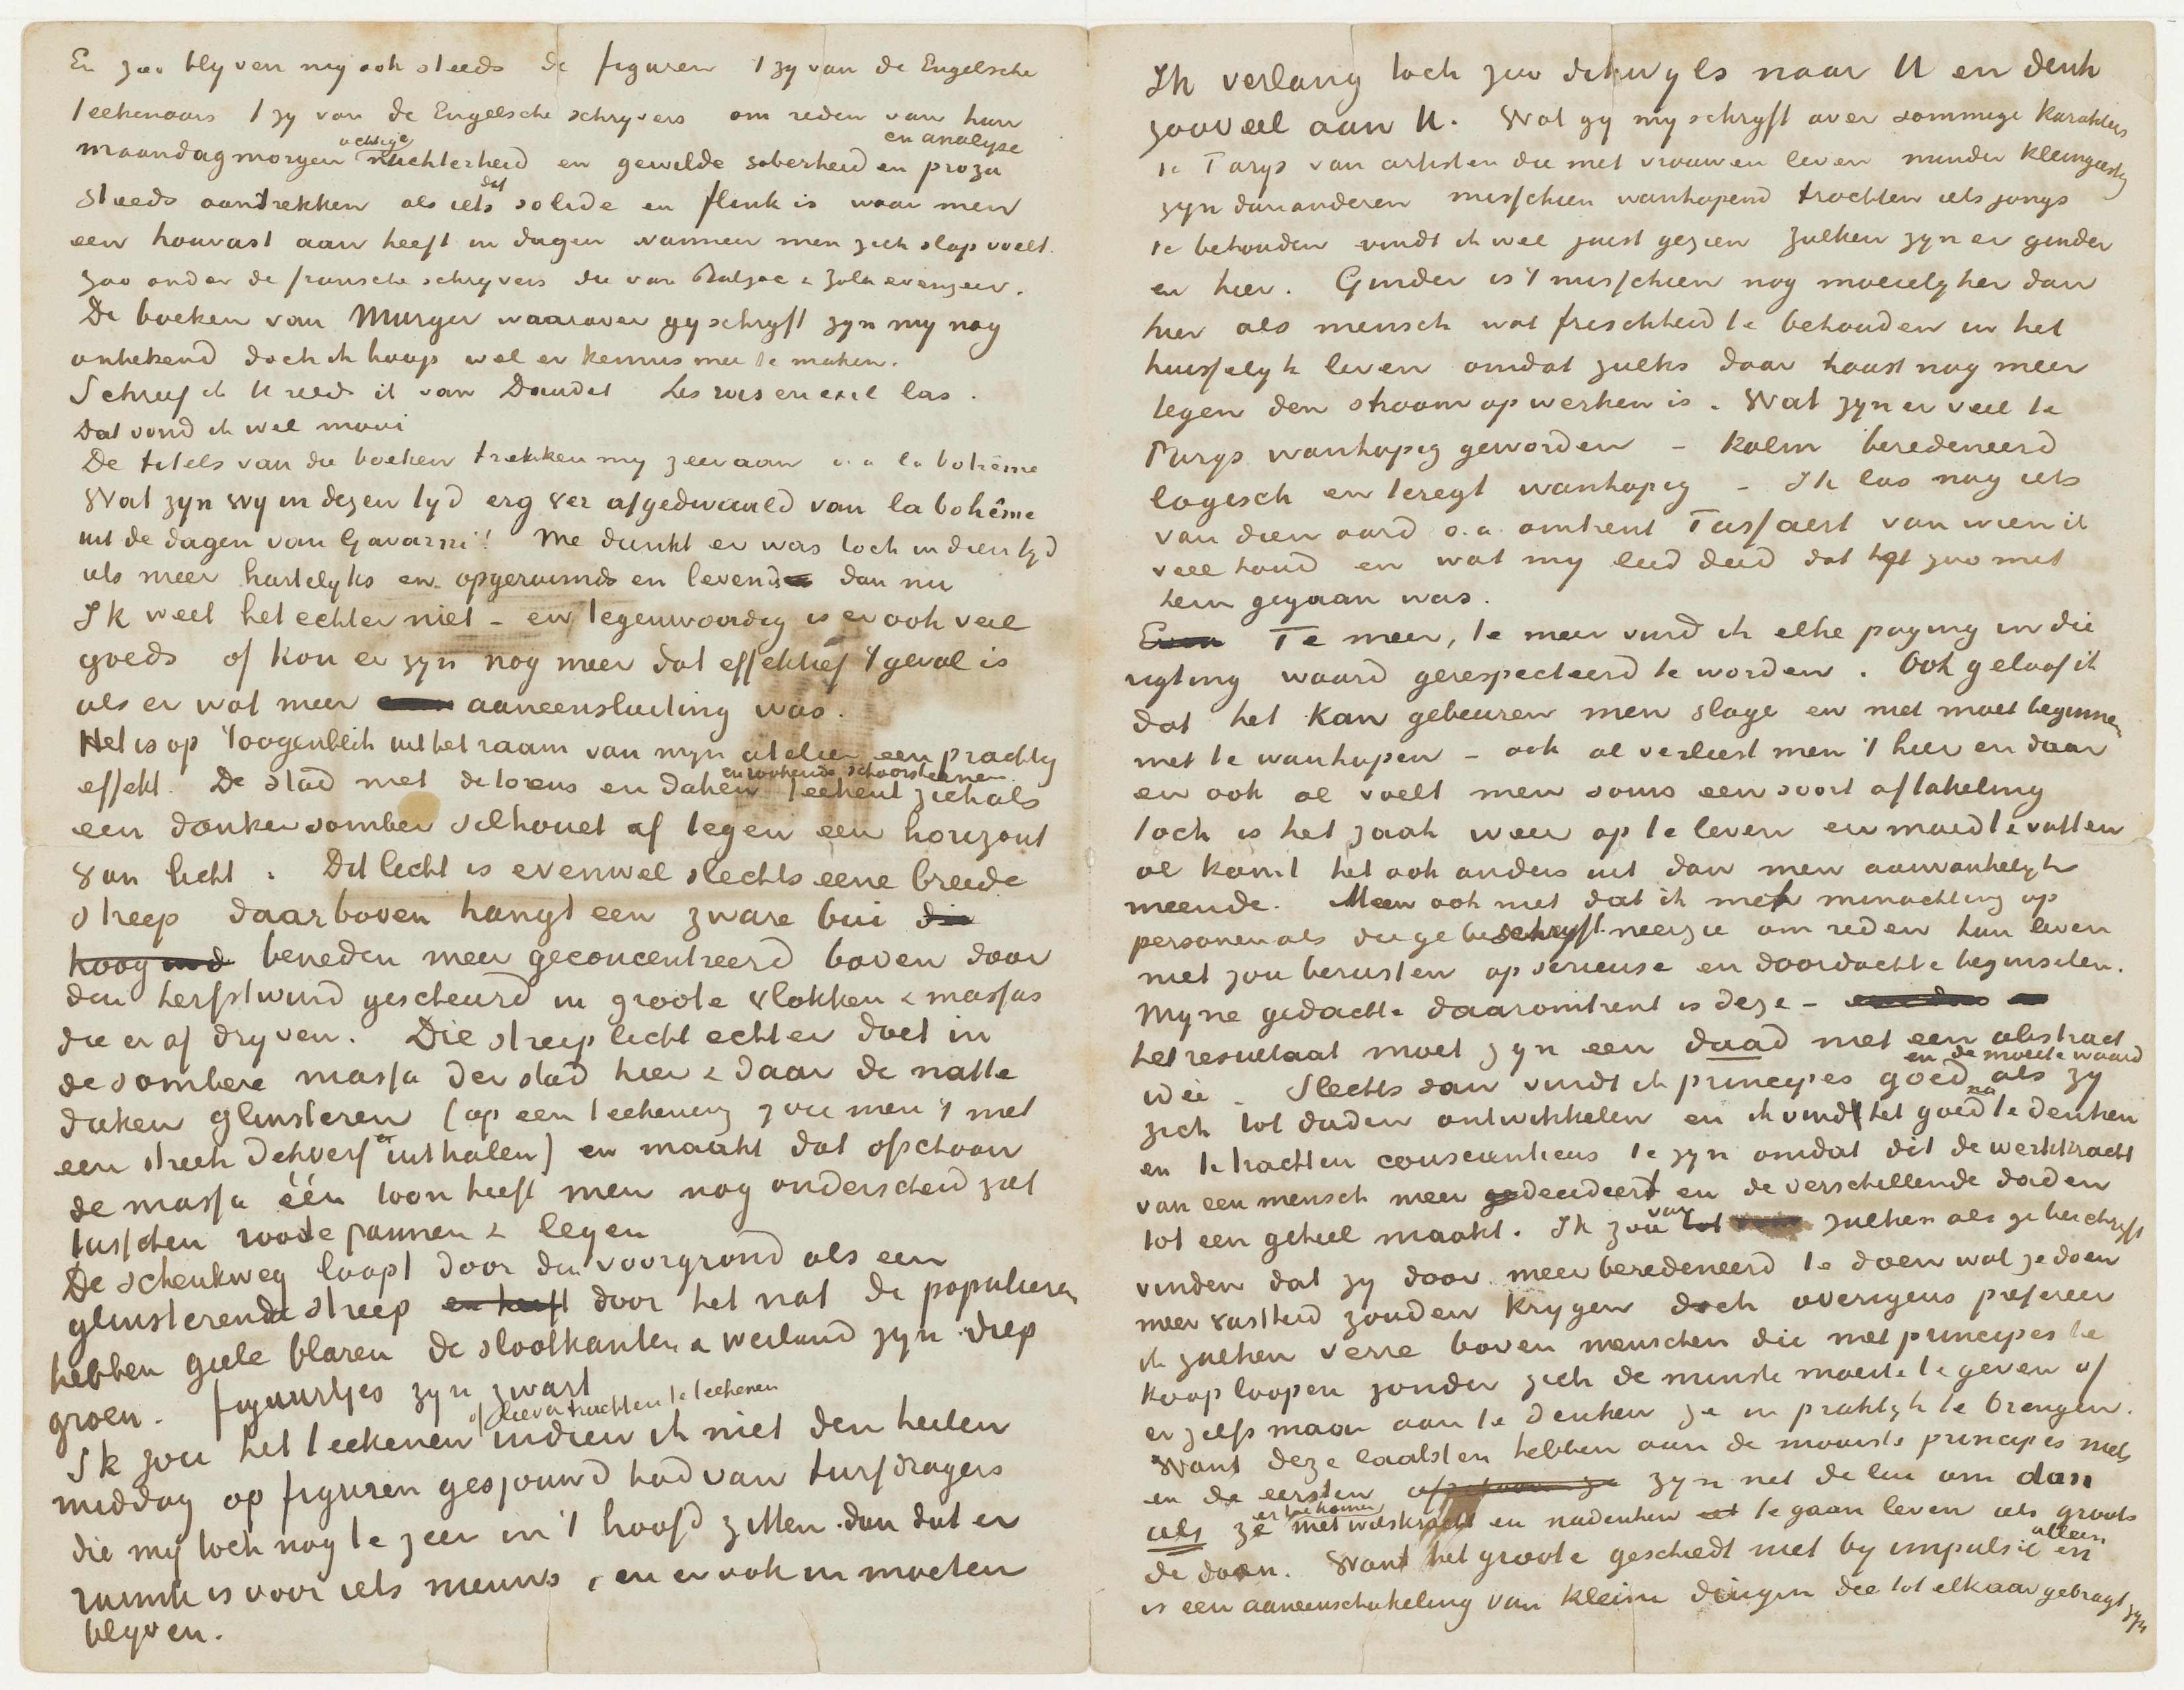 En zoo blyven my ook steeds de figuren 't zy van de Engelsche
teekenaars 't zy van de Engelsche schryvers om reden van hun
maandagmorgen achtige nuchterheid en gewilde soberheid en proza en analyse
steeds aantrekken als iets dat solide en flink is waar men
een houvast aan heeft in dagen wanneer men zich slap voelt.
zoo onder de fransche schryvers die van Balzac & Zola evenzeer.
De boeken van Murger waarover gy schryft zyn my nog
onbekend doch ik hoop wel er kennis mee te maken.
Schreef ik U reeds ik van Daudet Les rois en exil las.
Dat vond ik wel mooi
De titels van die boeken trekken my zeer aan o.a la bohême
Wat zyn wy in dezen tyd erg ver afgedwaald van la bohême
uit de dagen van Gavarni! Me dunkt er was toch in dien tyd
iets meer hartelyks en opgeruimds en levends dan nu
Ik weet het echter niet – en tegenwoordig is er ook veel
goeds of kon er zyn nog meer dat effektief 't geval is
als er wat meer aaneensluiting was.
Het is op 't oogenblik uit het raam van myn atelier een prachtig
effekt. De stad met de torens en daken en rookende schoorsteenen teekent zich als
een donker somber silhouet af tegen een horizont
van licht. Dit licht is evenwel slechts eene breede
streep daarboven hangt een zware bui die
hoog en d beneden meer geconcentreerd boven door
den herfstwind gescheurd in groote vlokken & massas
die er af dryven. Die streep licht echter doet in
de sombere massa der stad hier & daar de natte
daken glinsteren (op een teekening zou men 't met
een streek dekverf er uithalen) en maakt dat ofschoon
de massa één toon heeft men nog onderscheid ziet
tusschen roode pannen & leyen
De schenkweg loopt door den voorgrond als een
glinsterende streep en heeft door het nat de populieren
hebben geele blaren de slootkanten & weiland zyn diep
groen. figuurtjes zyn zwart
Ik zou het teekenen of liever trachten te teekenen indien ik niet den heelen
middag op figuren gesjouwd had van turfdragers
die my toch nog te zeer in 't hoofd zitten dan dat er
ruimte is voor iets nieuws, en er ook in moeten
blyven.
Ik verlang toch zoo dikwyls naar U en denk
zooveel aan U. Wat gy my schryft over sommige karakters
te Parys van artisten die met vrouwen leven minder kleingeestig
zyn dan anderen misschien wanhopend trachten iets jongs
te behouden vindt ik wel juist gezien zulken zyn er ginder
en hier. Ginder is 't misschien nog moeielyker dan
hier als mensch wat frischheid te behouden in het
huisselyk leven omdat zulks daar haast nog meer
tegen den stroom opwerken is. Wat zyn er veel te
Parys wanhopig geworden – kalm beredeneerd
logisch en teregt wanhopig – Ik las nog iets
van dien aard o.a. omtrent Tassaert van wien ik
veel houd en wat my leed deed dat het zoo met
hem gegaan was.
Even Te meer, te meer vind ik elke poging in die
rigting waard gerespecteerd te worden. Ook geloof ik
dat het kan gebeuren men slage en niet moet beginnen
met te wanhopen – ook al verliest men 't hier en daar
en ook al voelt men soms een soort aftakeling
toch is het zaak weer op te leven en moed te vatten
al komt het ook anders uit dan men aanvankelyk
meende. Meen ook niet dat ik met minachting op
personen als die ge beschryft neerzie om reden hun leven
niet zou berusten op serieuse en doordachte beginselen.
Myne gedachte daaromtrent is deze –
het resultaat moet zyn een daad niet een abstract
idée. Slechts dan vindt ik principes goed en de moeite waard als zy
zich tot daden ontwikkelen en ik vindt het goed na te denken
en te trachten consciencieus te zyn omdat dit de werkkracht
van een mensch meer gedecideerd en de verschillende daden
tot een geheel maakt. Ik zou van zulken als ge beschryft
vinden dat zy door meer beredeneerd te doen wat ze doen
meer vastheid zouden krygen doch overigens prefereer
ik zulken verre boven menschen die met principes te
koop loopen zonder zich de minste moeite te geven of
er zelfs maar aan te denken ze in praktyk te brengen.
Want deze laatsten hebben aan de mooiste principes niets
en de eersten ofschoon ze zyn net de lui om dan
als ze er toe komen met wilskracht en nadenken te gaan leven iets groots
de doen. Want het groote geschiedt niet by impulsie alleen en
is een aaneenschakeling van kleine dingen die tot elkaar gebragt zyn